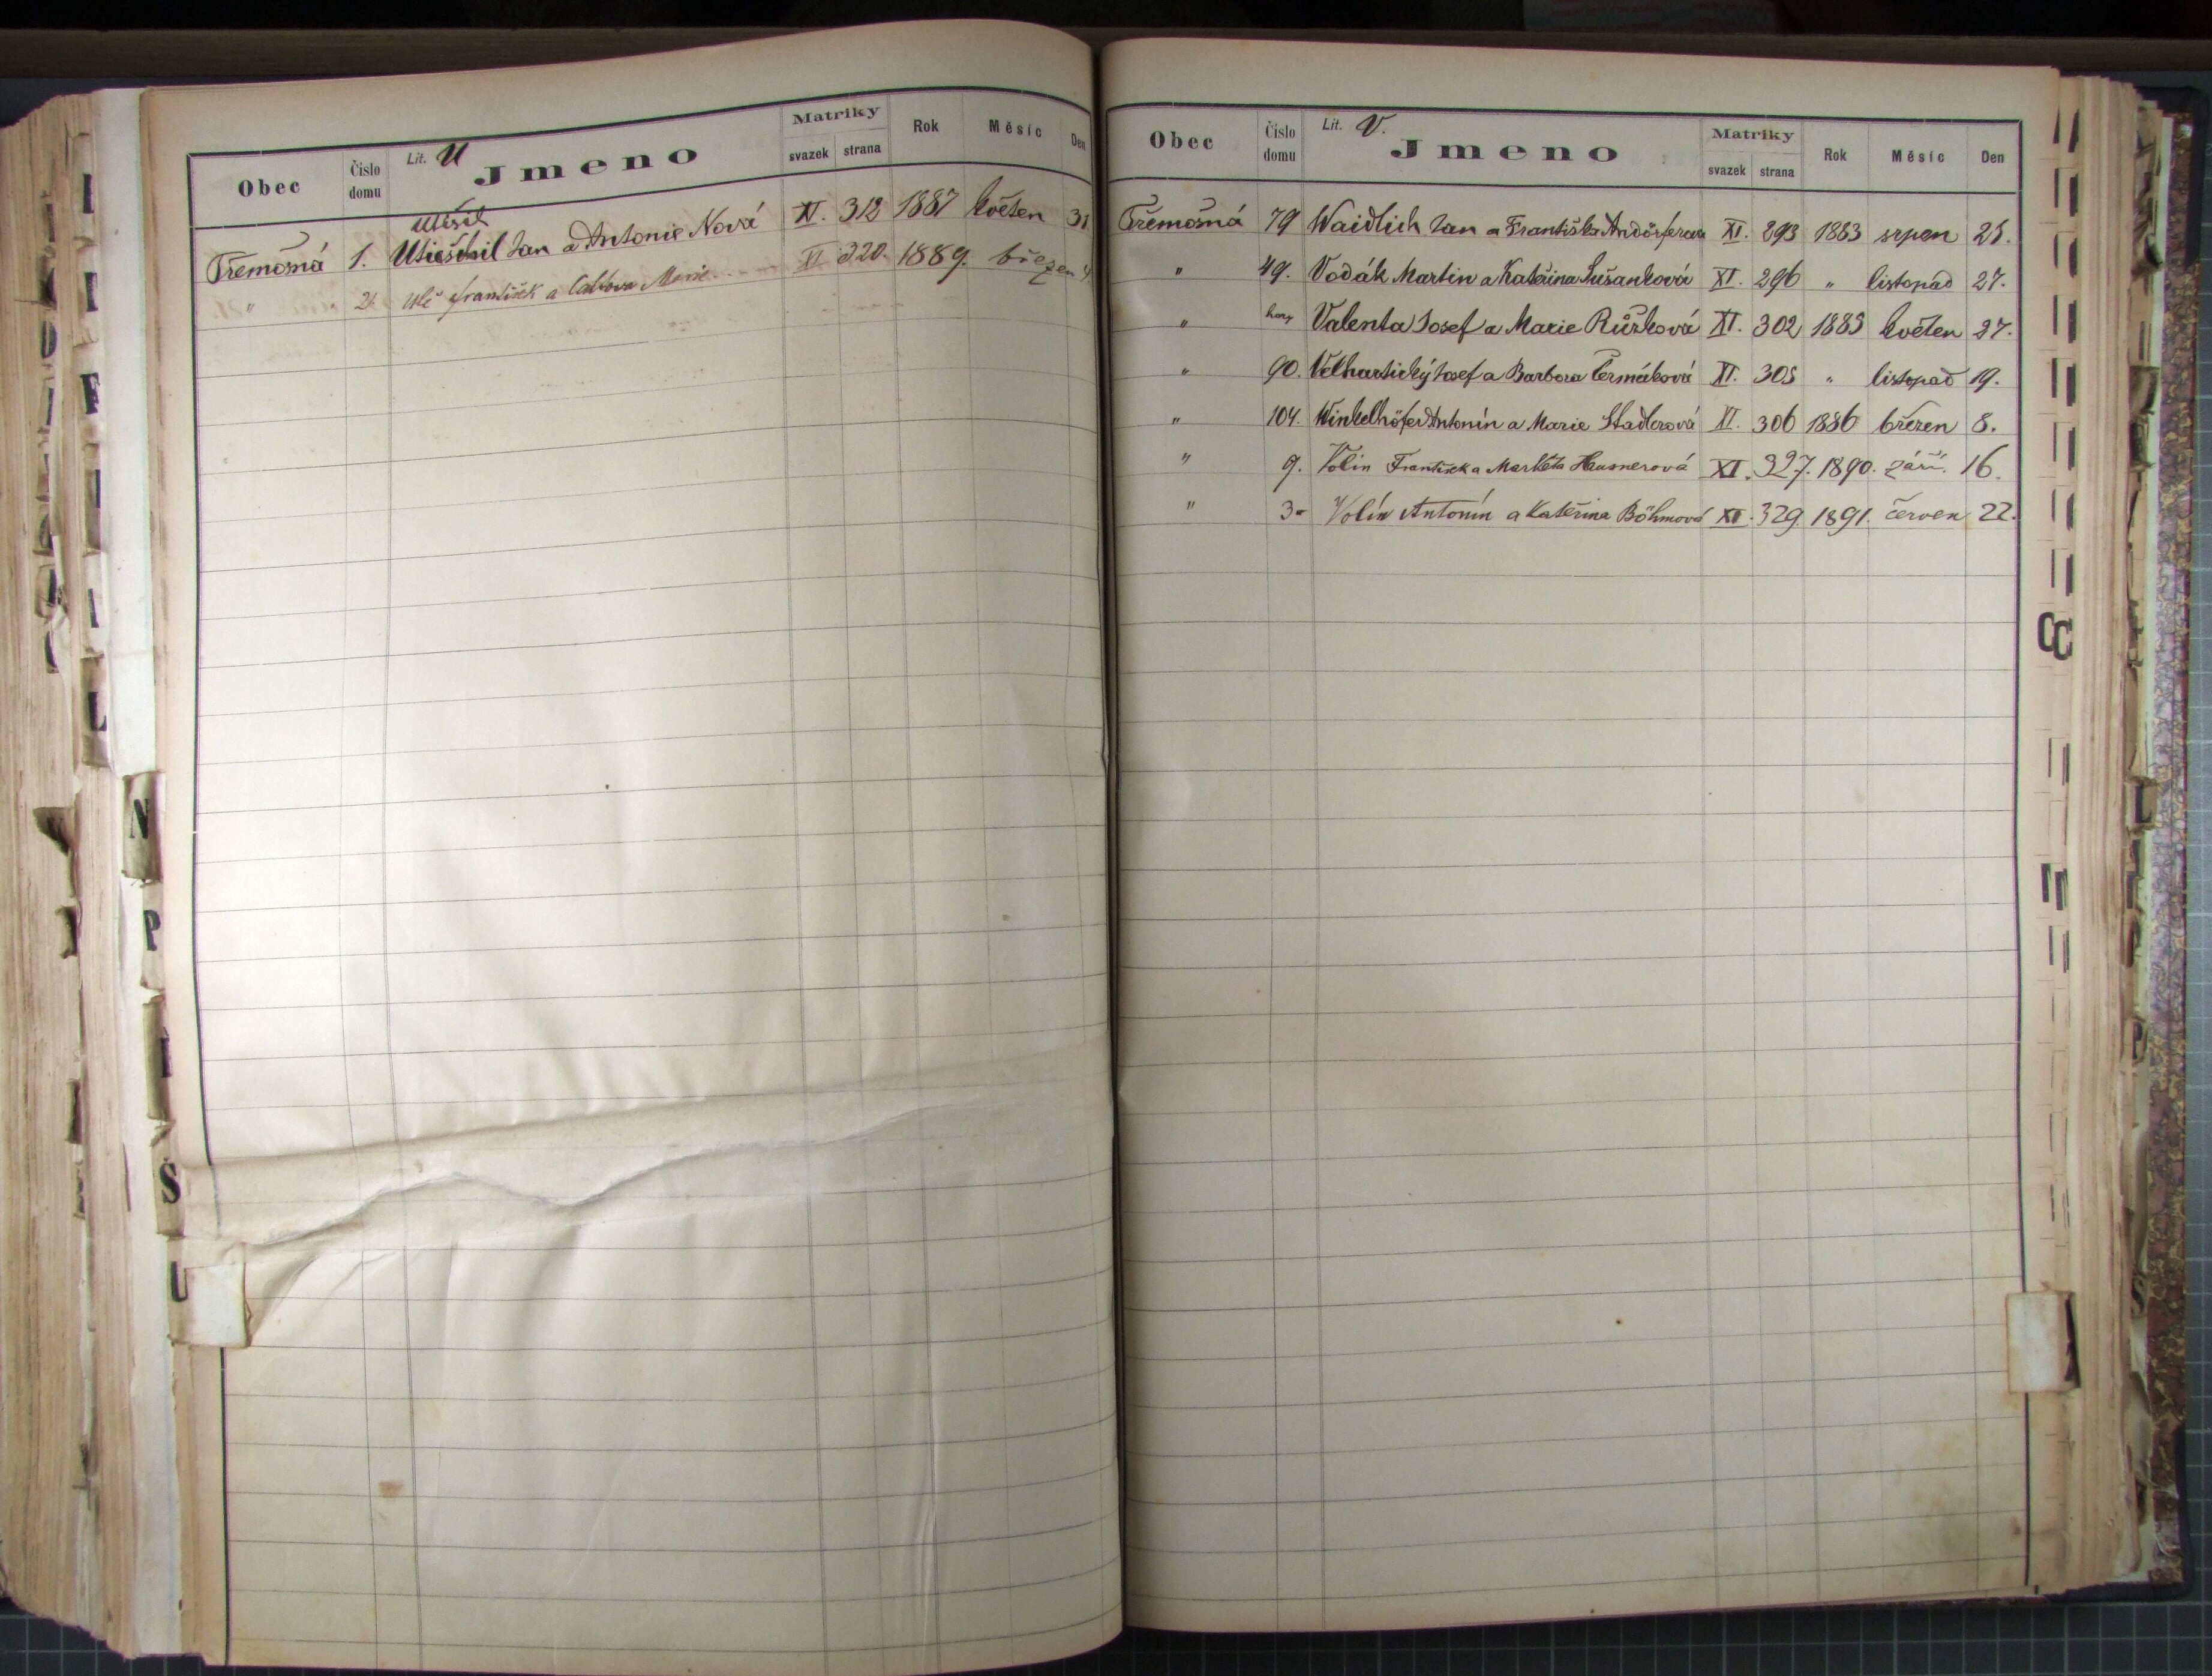 Obec Číslo domu Lit. U Jmeno Matriky svazek strana Rok Měsíc Den
Utěšil
Třemošná 1. Utieschil Jan a Antonie Nová XI. 312 1887 květen 31
" 21. Ulč František a Marie XI 320. 1889. březen 4
Obec Číslo domu Lit. V. Jmeno Matriky svazek strana Rok Měsíc Den
Třemošná 79 Waidlich Jan a Františka Andörferova XI. 293 1883 srpen 21.
" 49. Vodák Martin a Kateřina Sušanková XI. 296 " listopad 27.
" Valenta Josef a Marie Růžková XI. 302 1885 květen 27.
" 90. Velhartický Josef a Barbora Čermáková XI. 305 " listopad 19.
" 104. Winkelhöfer Antonín a Marie Stadlerová XI. 306 1886 březen 8.
" 9. Volín František a Markéta Hausnerová XI. 327. 1890. září. 16.
" 3 Volín Antonín a Kateřina Böhmová XI. 329. 1891. červen 22.
N
P
Š
U